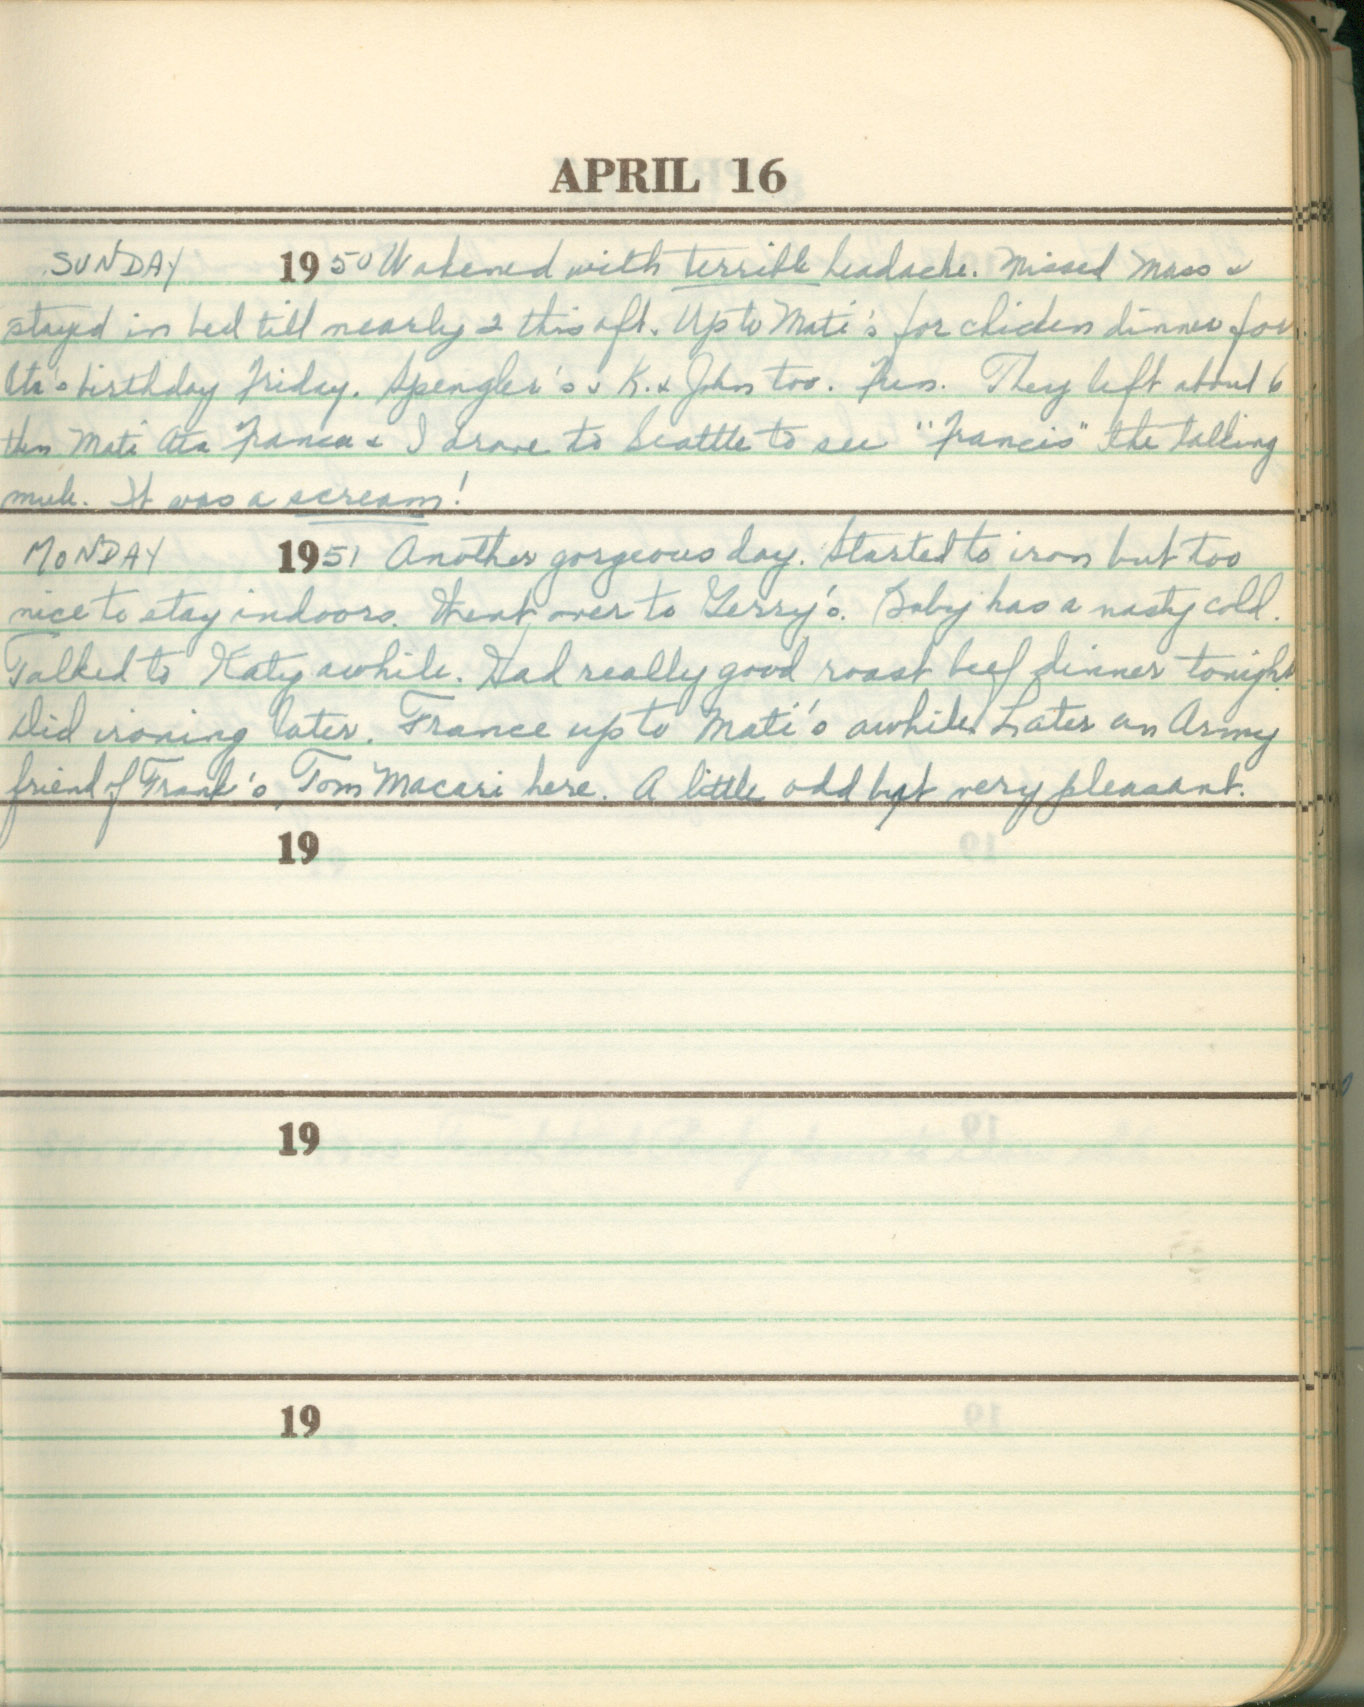 APRIL 16
SUNDAY 1950 Wakened with terrible headache. Missed Mass &
stayed in bed till nearly 2 this aft. Up to Mati's for chicken dinner for
Ata's birthday Friday. Spengler's & K. & John too. Fun. They left about 6
then Mati Ata France & I drove to Seattle to see "Francis" the talking
mule. It was a scream!
MONDAY 1951 Another gorgeous day. Started to iron but too
nice to stay indoors. Went over to Gerry's. Baby has a nasty cold.
Talked to Katy awhile. Had really good roast beef dinner tonight
Did ironing later. France up to Mati's awhile. Later an Army
friend of Frank's Tom Macari here. A little odd but very pleasant.
19
19
19